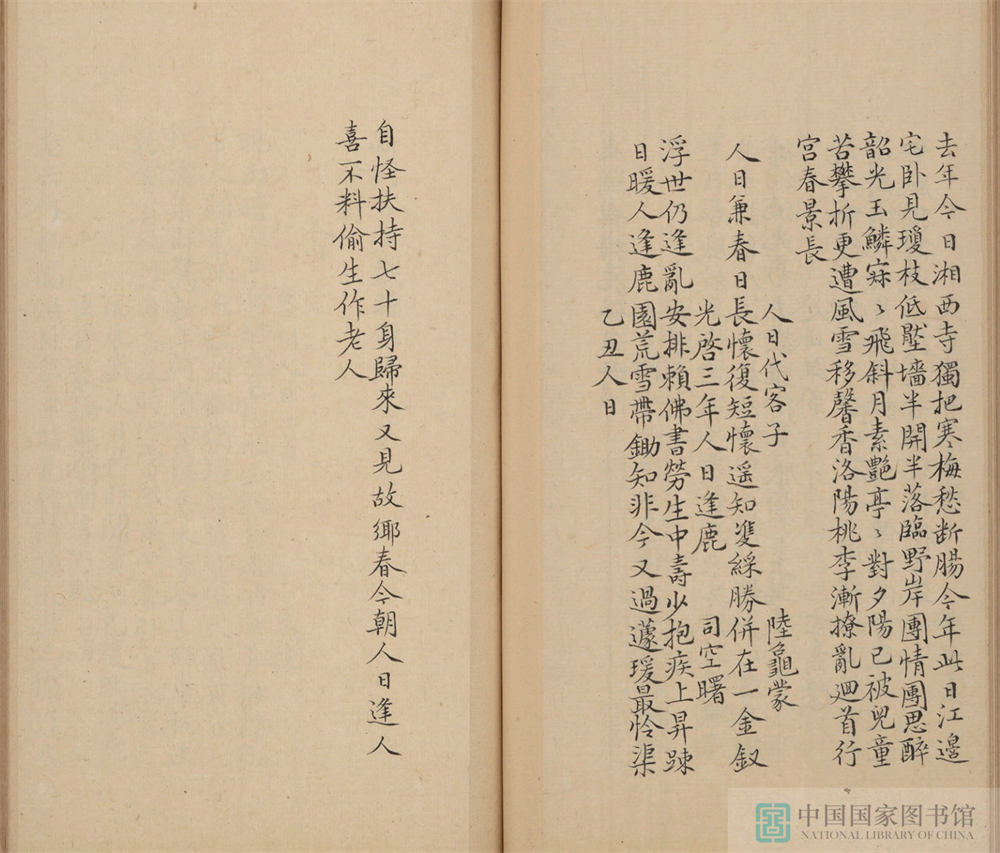 去年今日湘西寺獨把寒梅愁斷腸今年此日江邊
宅卧見瓊枝低壓墻半開半落臨野岸團情團思醉
韶光玉鱗寂〻飛斜月素艷亭〻對夕陽已被兒童
苦攀折更遭風雪移馨香洛陽桃李漸撩亂廻首行
宮春景長
人日代客子 陸龜蒙
人日兼春日長懷復短懷遥知雙綵勝併在一金釵
光啓三年人日逢鹿 司空曙
浮世仍逢亂安排賴佛書勞生中壽少抱疾上昇踈
日暖人逢鹿園荒雪帶鋤知非今又過蘧瑗最怜渠
乙丑人日
自怪扶持七十身歸來又見故鄉春今朝人日逢人
喜不料偷生作老人
中国国家图书馆
NATIONAL LIBRARY OF CHINA